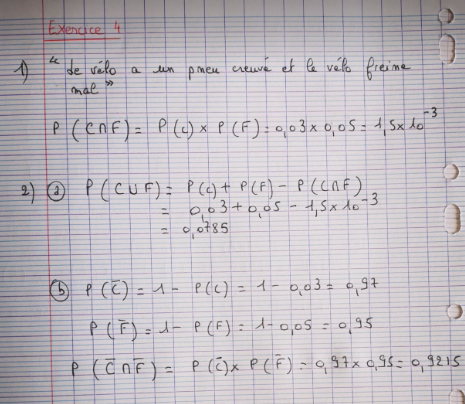 Exercice 4
1) " Le vélo a un pneu crevé et le vélo freine
mal "
P (C∩F) = P(C) × P(F) = 0,03 × 0,05 = 1,5 × 10⁻³
2) ⓐ P(C∪F) = P(C) + P(F) - P(C∩F)
= 0,03 + 0,05 - 1,5 × 10⁻³
= 0,0785
ⓑ P(C̄) = 1 - P(C) = 1 - 0,03 = 0,97
P(F̄) = 1 - P(F) = 1 - 0,05 = 0,95
P(C̄∩F̄) = P(C̄) × P(F̄) = 0,97 × 0,95 = 0,9215